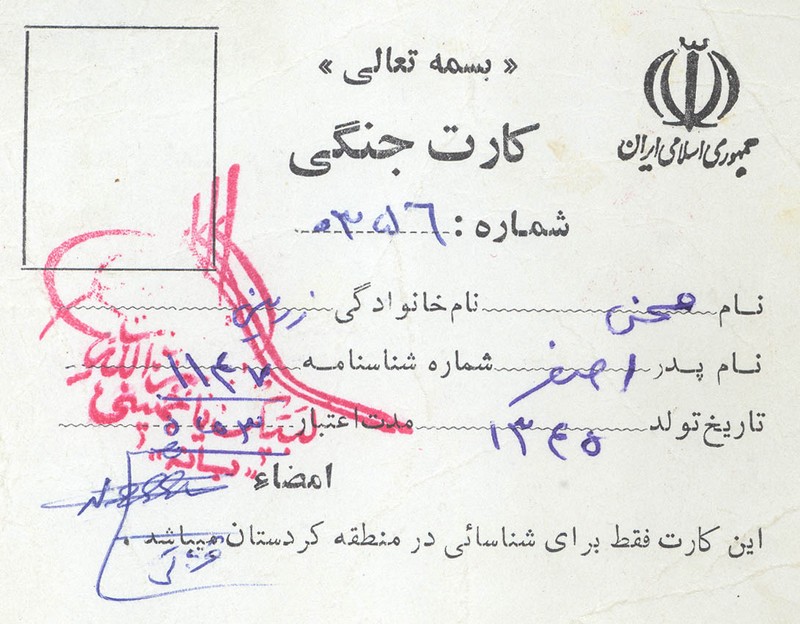 « بسمه تعالی »
جمهوری اسلامی ایران
کارت جنگی
شماره :
نام محسن نام خانوادگی
نام پدر اصغر شماره شناسنامه ۱۱۴۷
تاریخ تولد ۱۳۴۵ مدت اعتبار
لبیک یا خمینی
امضاء
این کارت فقط برای شناسائی در منطقه کردستان میباشد .